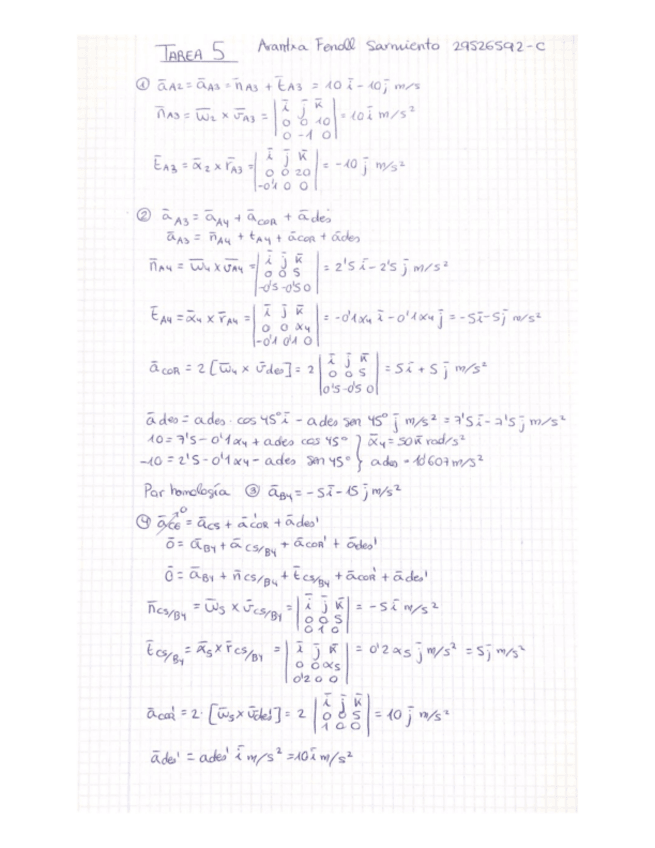 TAREA 5 Arantxa Fenoll Sarmiento 29526592-C
① āA2 = āA3 = n̄A3 + t̄A3 = 10 ī - 10 j̄ m/s
n̄A3 = ω̄2 x v̄A3 = | ī j̄ k̄ | 0 0 10 | 0 -1 0 | = 10 ī m/s²
t̄A3 = ᾱ2 x r̄A3 = | ī j̄ k̄ | 0 0 20 | -0'1 0 0 | = -10 j̄ m/s²
② āA3 = āA4 + āCOR + ādes
āA3 = n̄A4 + tA4 + āCOR + ādes
n̄A4 = ω̄4 x v̄A4 = | ī j̄ k̄ | 0 0 5 | -0'5 -0'5 0 | = 2'5 ī - 2'5 j̄ m/s²
t̄A4 = ᾱ4 x r̄A4 = | ī j̄ k̄ | 0 0 α4 | -0'1 0'1 0 | = -0'1α4 ī - 0'1α4 j̄ = -5ī - 5j̄ m/s²
āCOR = 2 [ω̄4 x v̄des] = 2 | ī j̄ k̄ | 0 0 5 | 0'5 -0'5 0 | = 5ī + 5 j̄ m/s²
ādes = ades · cos 45° ī - ades sen 45° j̄ m/s² = 7'5ī - 7'5 j̄ m/s²
10 = 7'5 - 0'1α4 + ades cos 45° } ᾱ4 = 50 k̄ rad/s²
-10 = 2'5 - 0'1α4 - ades sen 45° } ades = 10'607 m/s²
Por homología ③ āB4 = -5ī - 15 j̄ m/s²
④ āC6 →0 = āC5 + āCOR' + ādes'
0̄ = āB4 + āC5/B4 + āCOR' + ādes'
0̄ = āB4 + n̄C5/B4 + t̄C5/B4 + āCOR' + ādes'
n̄C5/B4 = ω̄5 x v̄C5/B4 = | ī j̄ k̄ | 0 0 5 | 0 1 0 | = -5 ī m/s²
t̄C5/B4 = ᾱ5 x r̄C5/B4 = | ī j̄ k̄ | 0 0 α5 | 0'2 0 0 | = 0'2 α5 j̄ m/s² = 5 j̄ m/s²
āCOR' = 2 · [ω̄5 x v̄des'] = 2 | ī j̄ k̄ | 0 0 5 | 1 0 0 | = 10 j̄ m/s²
ādes' = ades' ī m/s² = 10 ī m/s²